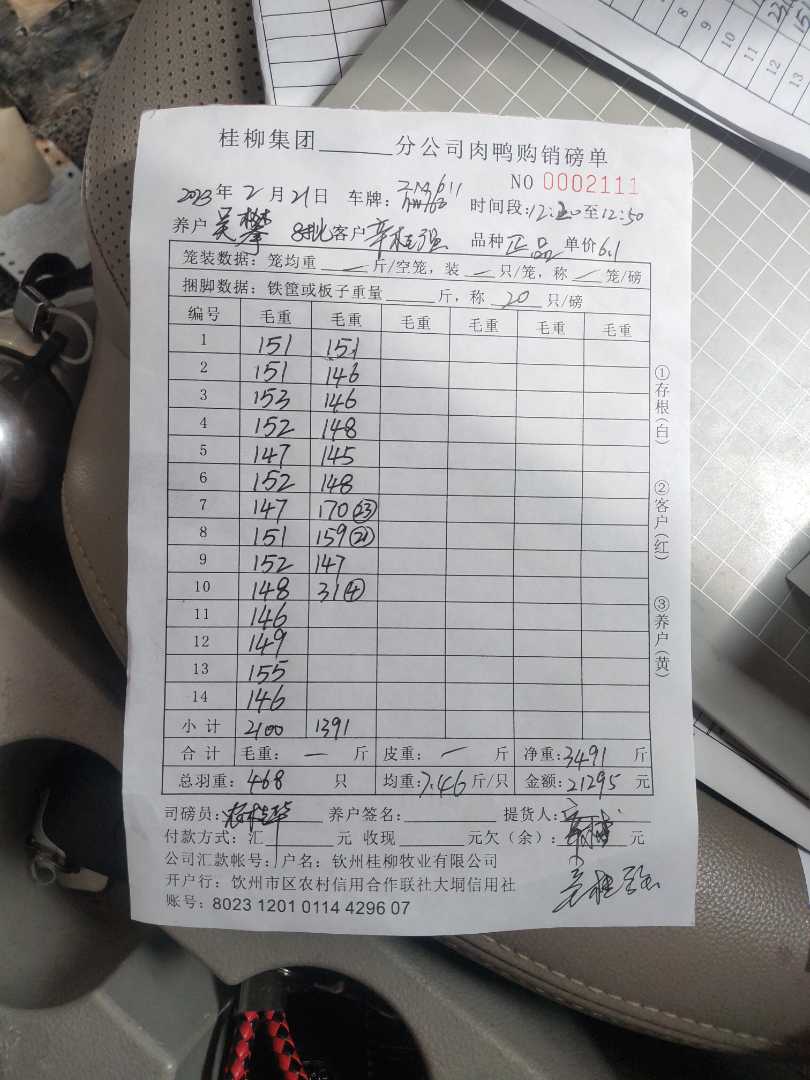 桂柳集团______分公司肉鸭购销磅单
NO 0002111
2023年2月21日 车牌: 时间段:12:20至12:50
养户 吴攀 8批 客户 辛桂强 品种 正品 单价 6.1
笼装数据: 笼均重 — 斤/空笼, 装 — 只/笼, 称 — 笼/磅
捆脚数据: 铁筐或板子重量______斤, 称 20 只/磅
编号 毛重 毛重 毛重 毛重 毛重 毛重
1 151 151
2 151 146
3 153 146
4 152 148
5 147 145
6 152 148
7 147 170 ㉓
8 151 159 ㉑
9 152 147
10 148 31 ④
11 146
12 149
13 155
14 146
小计 2100 1391
合计 毛重: — 斤 皮重: — 斤 净重: 3491 斤
总羽重: 468 只 均重: 7.46 斤/只 金额: 21295 元
司磅员: 养户签名: 提货人:
付款方式: 汇______元 收现______元欠(余):______元
辛桂强
公司汇款帐号: 户名: 钦州桂柳牧业有限公司
开户行: 饮州市区农村信用合作联社大垌信用社
账号: 8023 1201 0114 4296 07
①存根(白)
②客户(红)
③养户(黄)
8
9
10
11
12
13